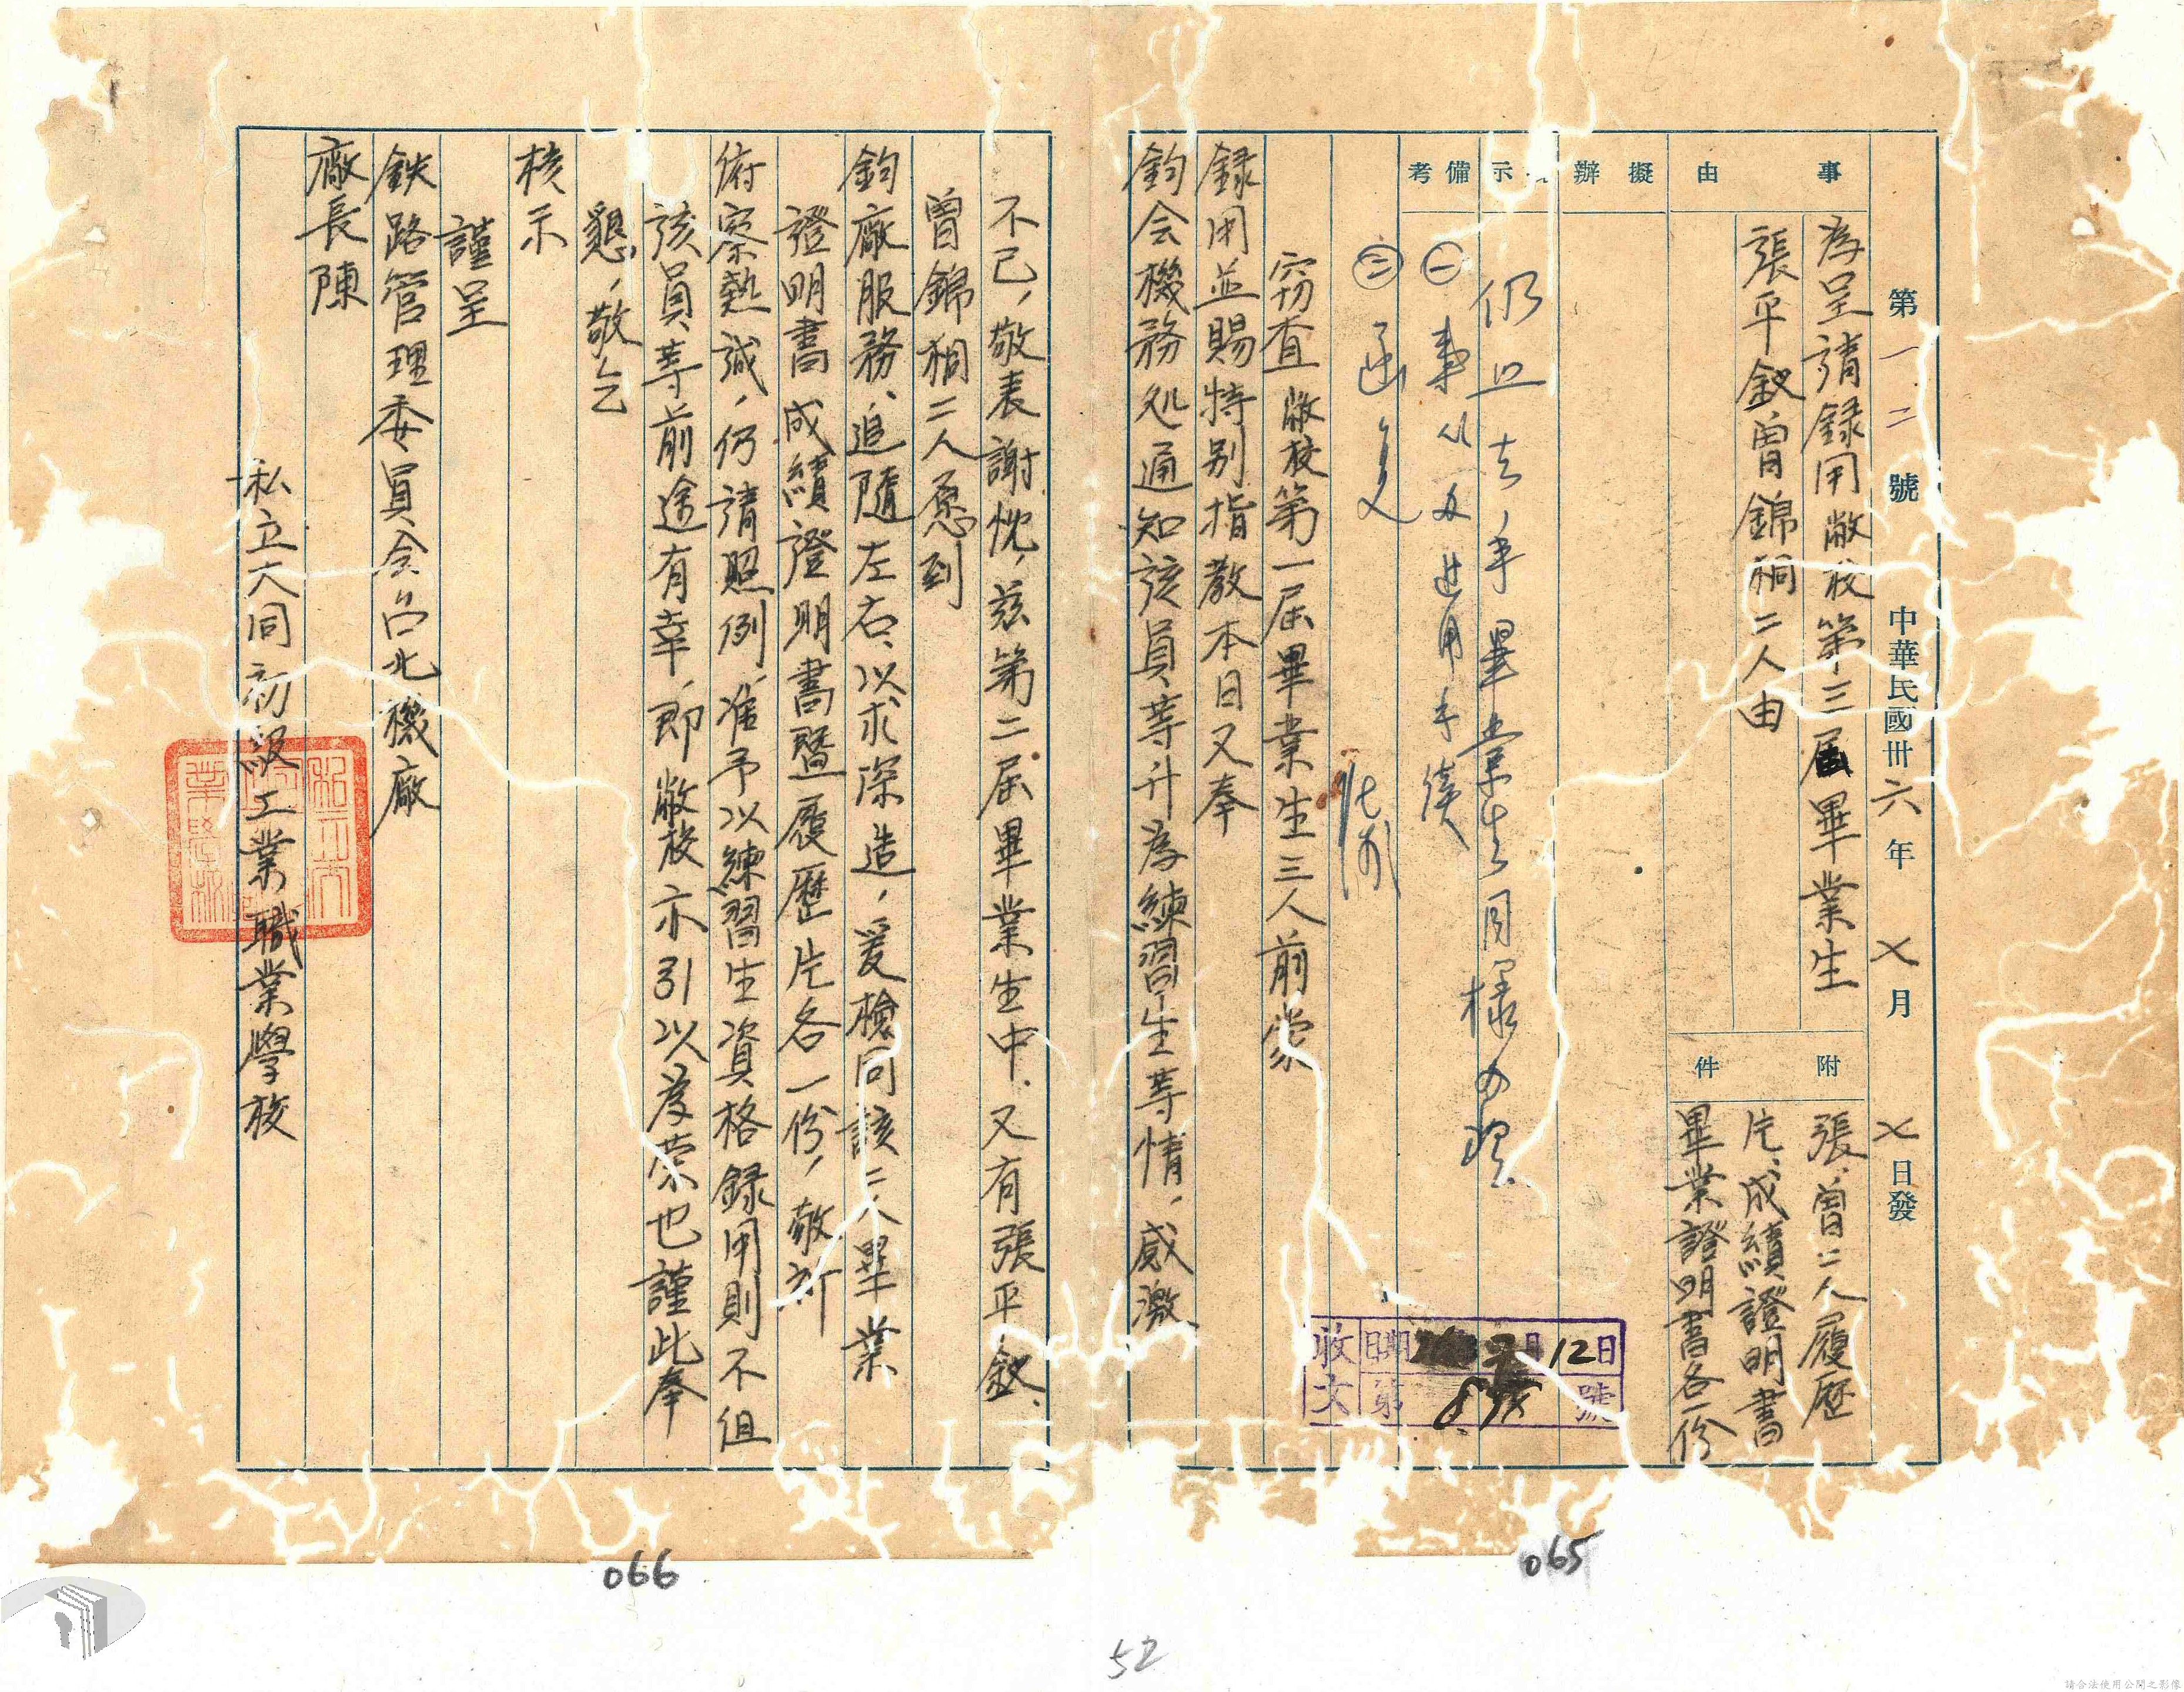 第一二號 中華民國卅六年七月七日發
事由
為呈請録用敝校第三屆畢業生
張平釵曾錦桐二人由
附件
張、曾二人履歷
片、成績證明書
畢業證明書各一份
擬辦
示
備考
仍照去年畢業生同樣办理
㈠ 事从力進用手续
㈡ 函复
竊查敝校第一屆畢業生三人前蒙
録用並賜特别指教本日又奉
鈞会機務处通知該員等升為練習生等情，感激
收文 日期 7月12日
第 號
不已，敬表謝忱，兹第二屆畢業生中，又有張平釵、
曾錦桐二人愿到
鈞廠服務、追隨左右、以求深造，爰檢同該二人畢業
證明書成績證明書暨履歷片各一份，敬祈
俯察熱誠，仍請照例，准予以練習生資格録用則不但
該員等前途有幸，即敝校亦引以為荣也謹此奉
懇，敬乞
核示
謹呈
鉄路管理委員会台北機廠
廠長陳
私立大同初級工業職業學校
065
066
52
請合法使用公開之影像